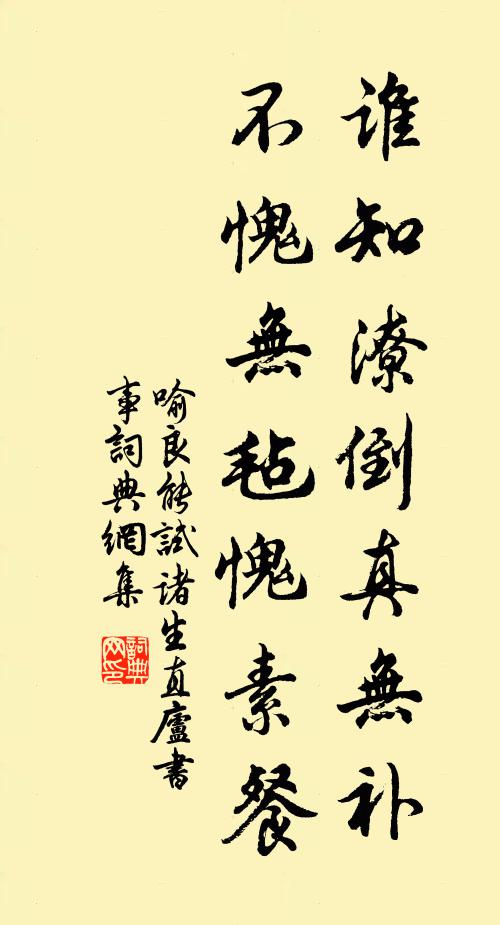 谁知潦倒真無补
不愧無毡愧素餐
喻良能試诸生直廬書
事詞典網集
詞典网印